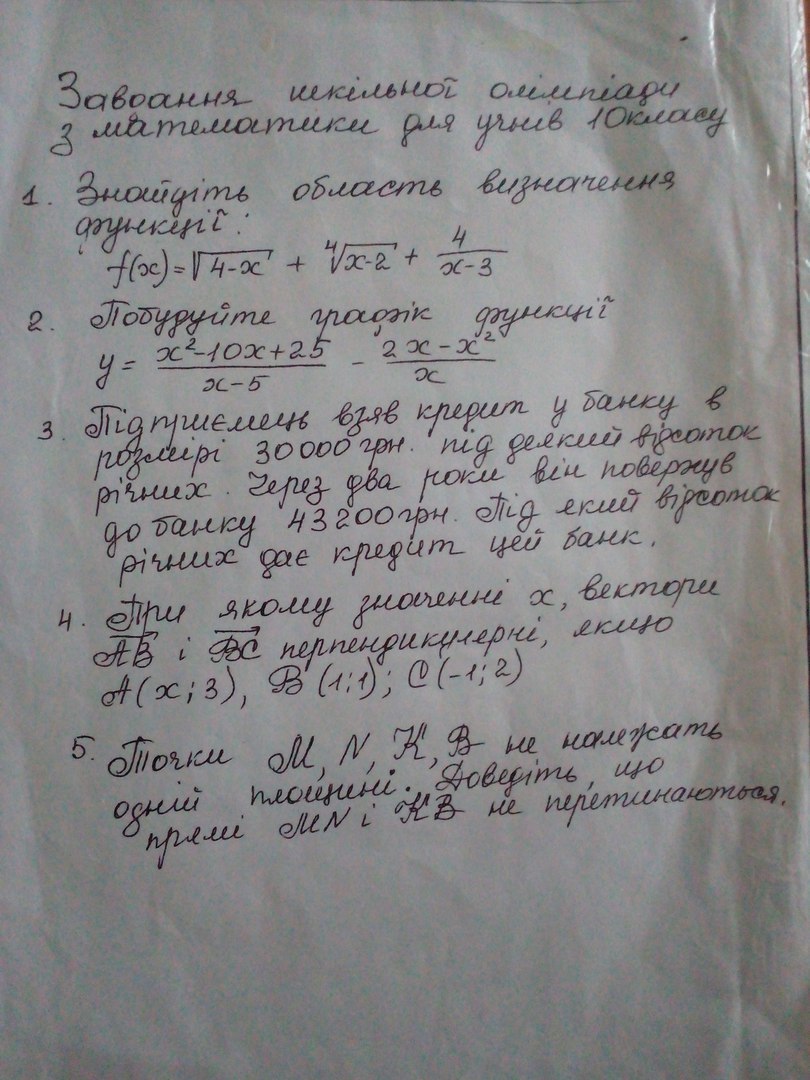 Завдання шкільної олімпіади
з математики для учнів 10класу
1. Знайдіть область визначення
функції:
f(x)=√4-x + ⁴√x-2 + 4/(x-3)
2. Побудуйте графік функції
y = (x²-10x+25)/(x-5) - (2x-x²)/x
3. Підприємець взяв кредит у банку в
розмірі 30000грн. під деякий відсоток
річних. Через два роки він повернув
до банку 43200грн. Під який відсоток
річних дає кредит цей банк.
4. При якому значенні x, вектори
AB і BC перпендикулярні, якщо
A(x;3), B(1;1); C(-1;2)
5. Точки M, N, K, B не належать
одній площині. Доведіть, що
прямі MN і KB не перетинаються.